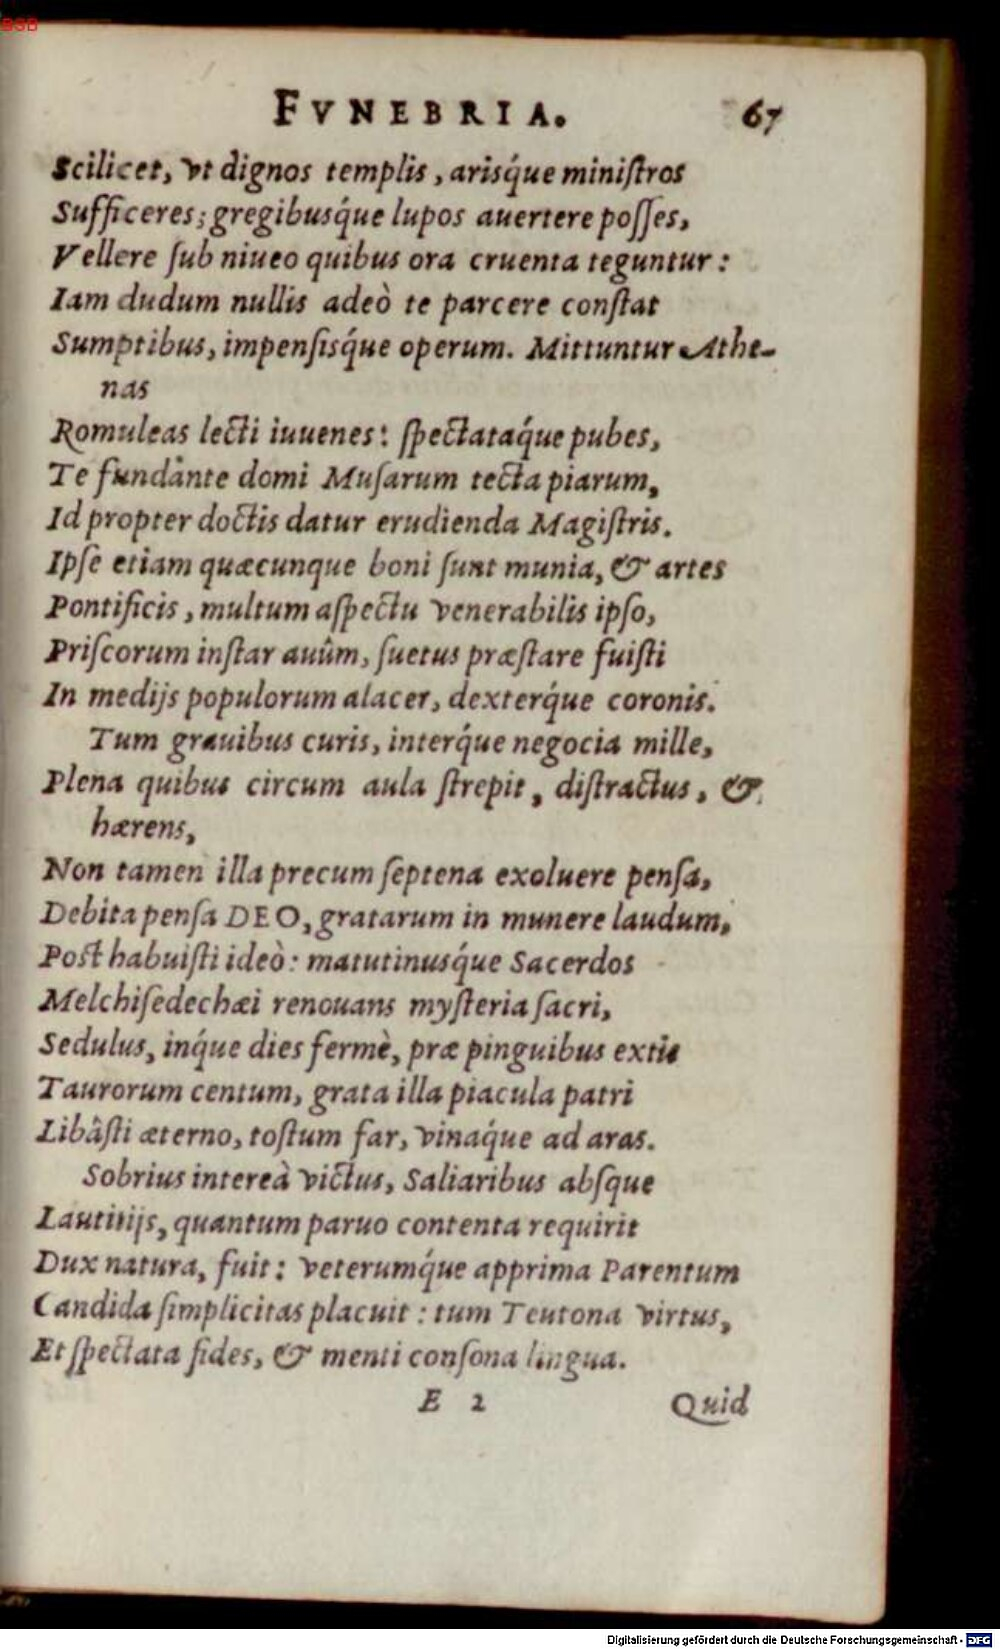 BSB
FVNEBRIA. 67
Scilicet, vt dignos templis, arisq́ue miniſtros
Sufficeres; gregibusq́ue lupos auertere poſſes,
Vellere ſub niueo quibus ora cruenta teguntur:
Iam dudum nullis adeò te parcere conſtat
Sumptibus, impenſisq́ue operum. Mittuntur Athe-
nas
Romuleas lecti iuuenes: ſpectataq́ue pubes,
Te fundante domi Muſarum tecta piarum,
Id propter doctis datur erudienda Magiſtris.
Ipſe etiam quæcunque boni ſunt munia, & artes
Pontificis, multum aſpectu venerabilis ipſo,
Priſcorum inſtar auûm, ſuetus præſtare fuiſti
In medijs populorum alacer, dexterq́ue coronis.
Tum grauibus curis, interq́ue negocia mille,
Plena quibus circum aula ſtrepit, diſtractus, &
hærens,
Non tamen illa precum ſeptena exoluere penſa,
Debita penſa DEO, gratarum in munere laudum,
Poſt habuiſti ideò: matutinusq́ue Sacerdos
Melchiſedechæi renouans myſteria ſacri,
Sedulus, inq́ue dies fermè, præ pinguibus extis
Taurorum centum, grata illa piacula patri
Libâſti æterno, toſtum far, vinaq́ue ad aras.
Sobrius intereà victus, Saliaribus abſque
Lautitijs, quantum paruo contenta requirit
Dux natura, fuit: veterumq́ue apprima Parentum
Candida ſimplicitas placuit: tum Teutona virtus,
Et ſpectata fides, & menti conſona lingua.
E 2 Quid
Digitalisierung gefördert durch die Deutsche Forschungsgemeinschaft - DFG